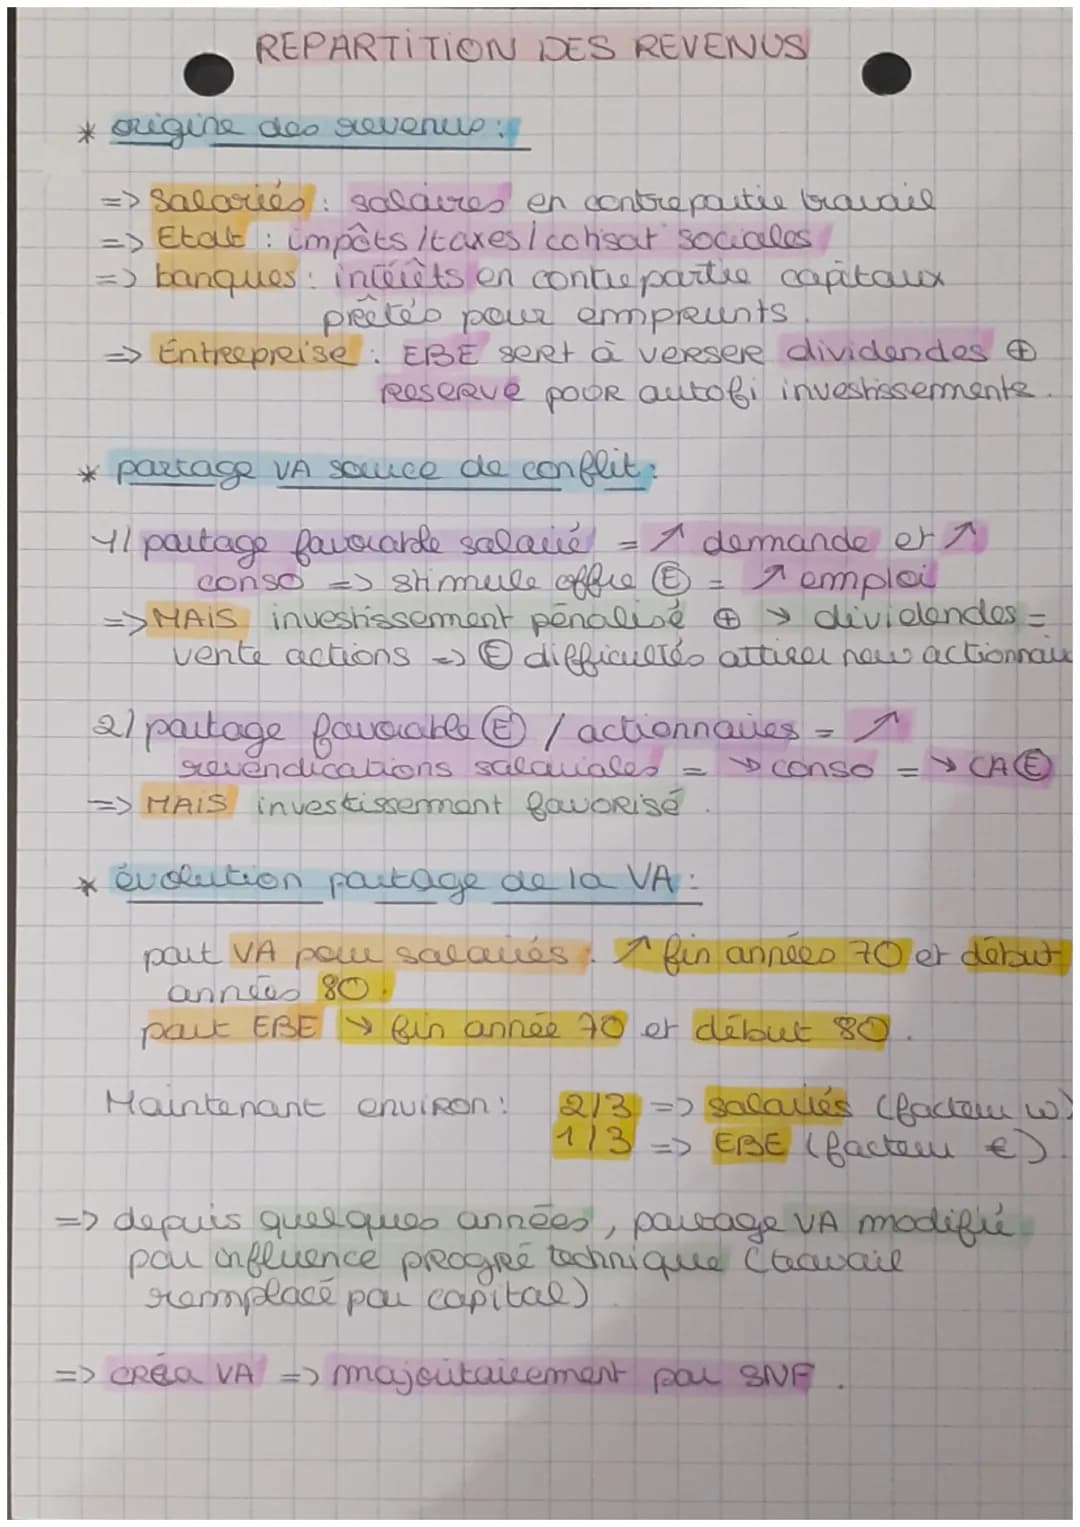 REPARTITION DES REVENUS
* origine des revenus :
=> Salariés : salaires en contrepartie travail
=> Etat : impôts/taxes/cotisat° sociales
=> banques : intérêts en contrepartie capitaux
prêtés pour emprunts.
=> Entreprise : EBE sert à verser dividendes ⊕
reserve pour autofi investissements.
* partage VA source de conflit :
1/ partage favorable salarié = ↗ demande et ↗
conso => stimule offre Ⓔ = ↗ emploi
=> MAIS investissement pénalisé ⊕ ↘ dividendes =
vente actions => Ⓔ difficultés attirer new actionnai
2/ partage favorable Ⓔ / actionnaires = ↗
revendications salariales = ↘ conso = ↘ CA Ⓔ
=> MAIS investissement favorisé.
* évolution partage de la VA :
part VA pour salariés : ↗ fin années 70 et début
années 80.
part EBE ↘ fin année 70 et début 80.
Maintenant environ : 2/3 => salariés (facteur w)
1/3 => EBE (facteur €).
=> depuis quelques années, partage VA modifié
par influence progré technique (travail
remplacé par capital).
=> créa VA => majoritairement par SNF.